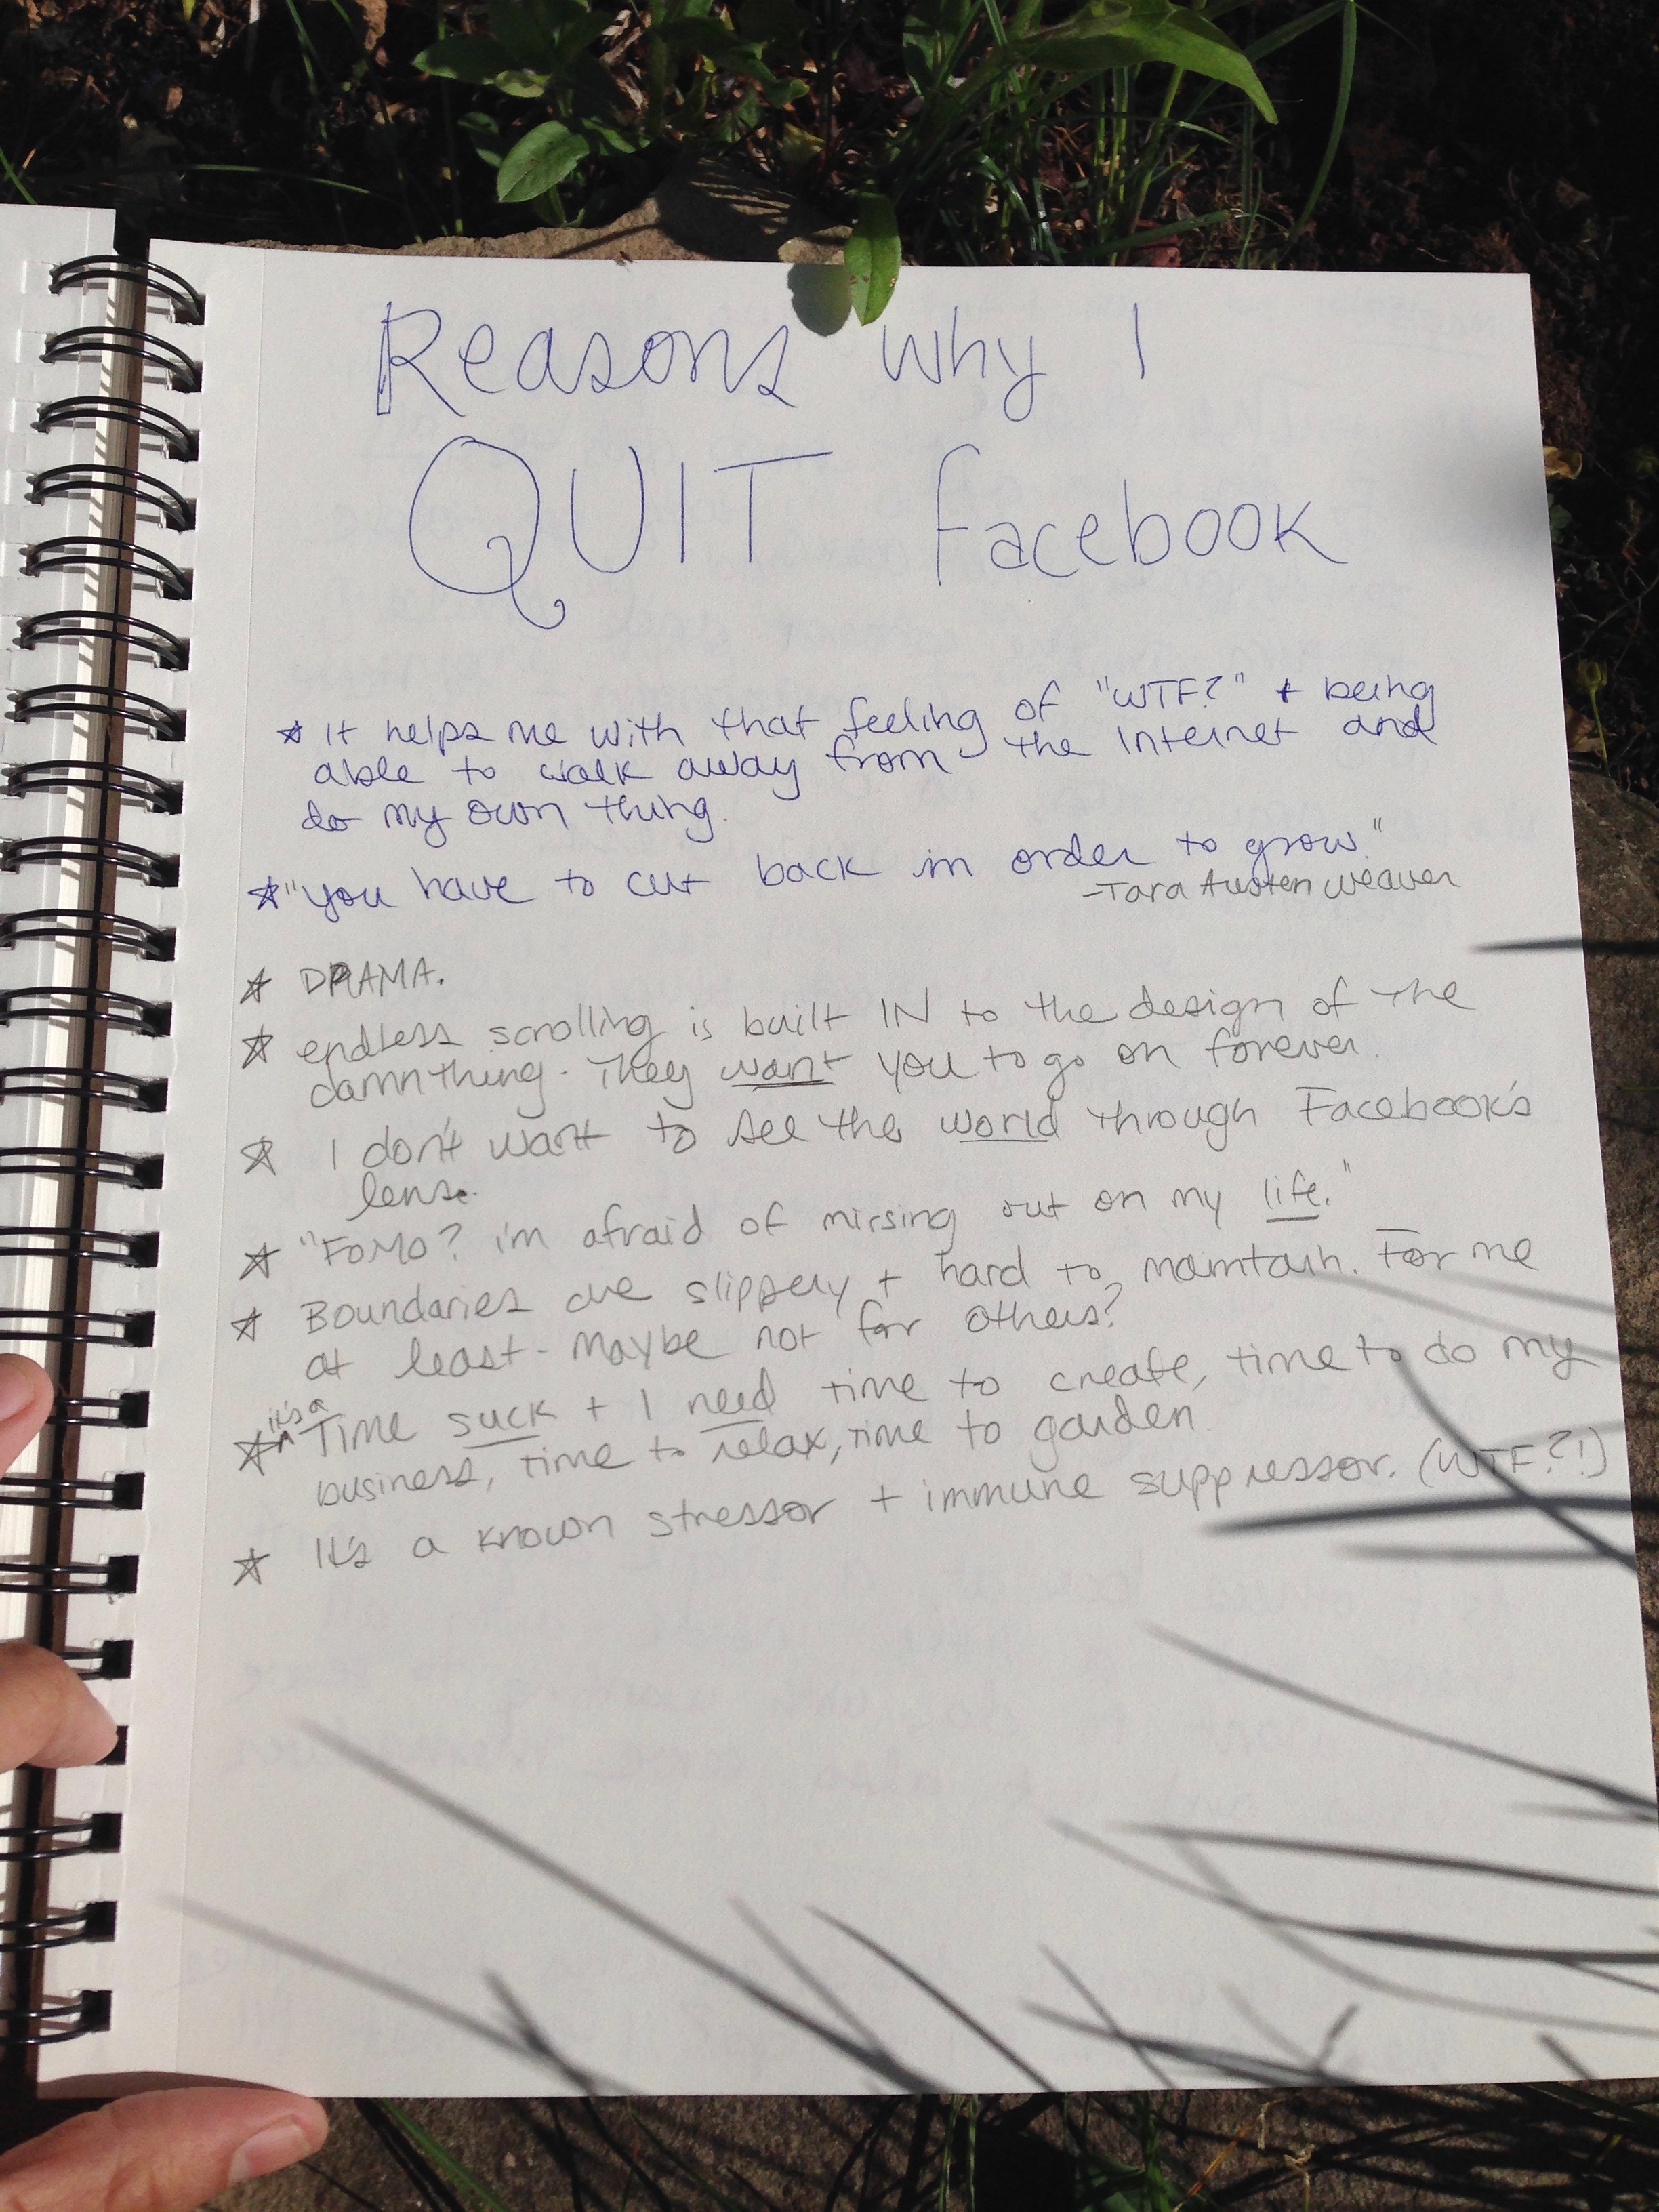 Reasons why I
QUIT facebook
☆ It helps me with that feeling of "WTF?" + being
able to walk away from the internet and
do my own thing.
☆ "You have to cut back in order to grow."
-Tara Austen Weaver
☆ DRAMA.
☆ endless scrolling is built IN to the design of the
damn thing. They want you to go on forever.
☆ I don't want to see the world through Facebook's
lens.
☆ "FOMO? i'm afraid of missing out on my life."
☆ Boundaries are slippery + hard to maintain. For me
at least - maybe not for others?
☆ it's a Time suck + I need time to create, time to do my
business, time to relax, time to garden.
☆ It's a known stressor + immune suppressor. (WTF?!)